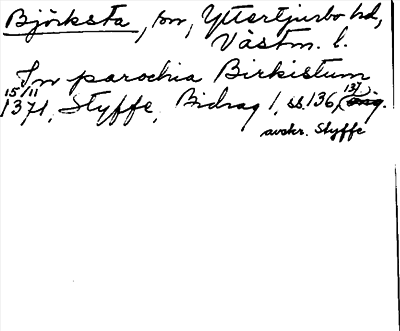 Björksta, sn, Yttertjurbo hd,
Västm. l.
In parochia Birkistum
15/11
1371, Styffe, Bidrag 1, ss. 136, 137
avskr. Styffe